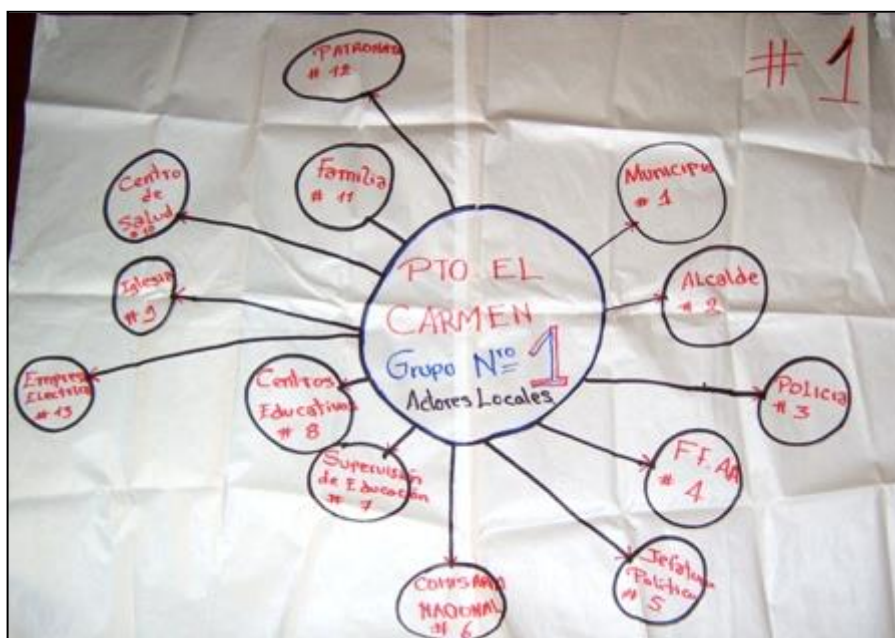 # 1
PTO EL
CARMEN
Grupo Nro 1
Actores Locales
Municipio
# 1
Alcalde
# 2
Policia
# 3
FF.AA
# 4
Jefatura
Política
# 5
COMISARIO
NACIONAL
# 6
Supervisión
de Educación
# 7
Centros
Educativos
# 8
Iglesia
# 9
Centro
de
Salud
# 10
Familia
# 11
PATRONATO
# 12
Empresa
Electrica
# 13